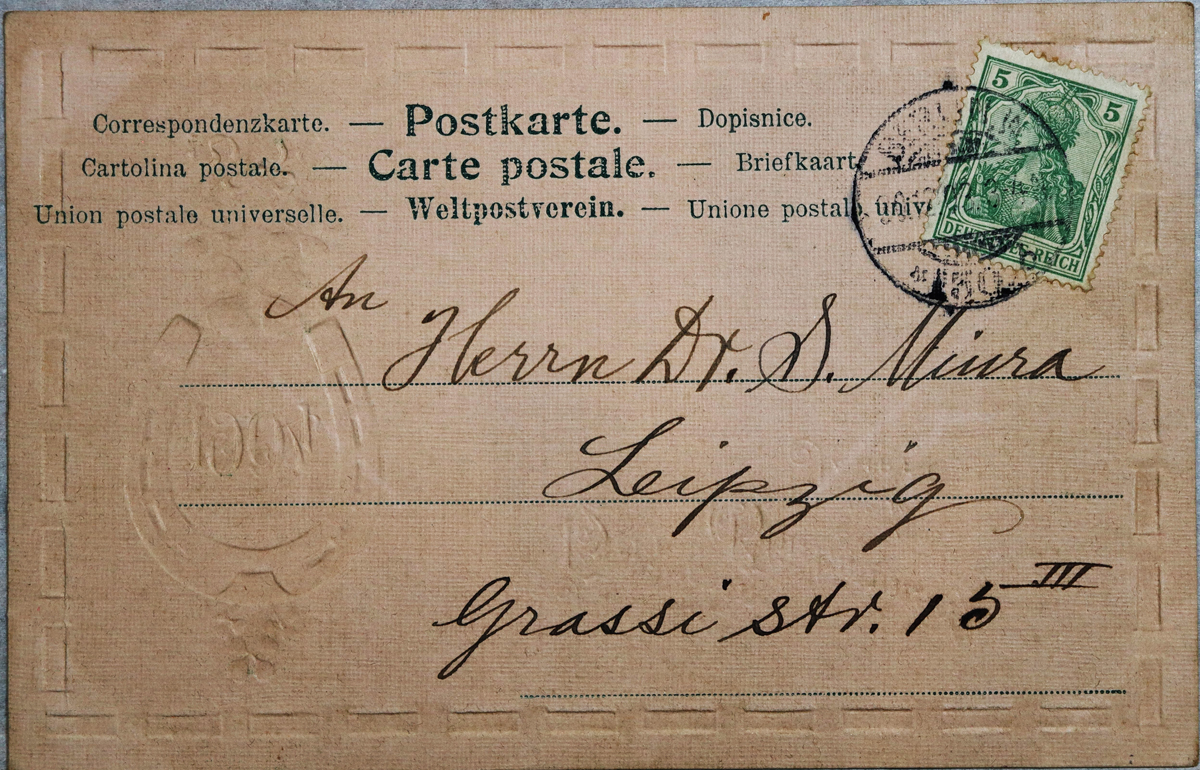 Correspondenzkarte. — Postkarte. — Dopisnice.
Cartolina postale. — Carte postale. — Briefkaart
Union postale universelle. — Weltpostverein. — Unione postale
5 5
DEUTSCHES REICH
An
Herrn Dr. S. Miura
Leipzig
Grassi str. 15 III